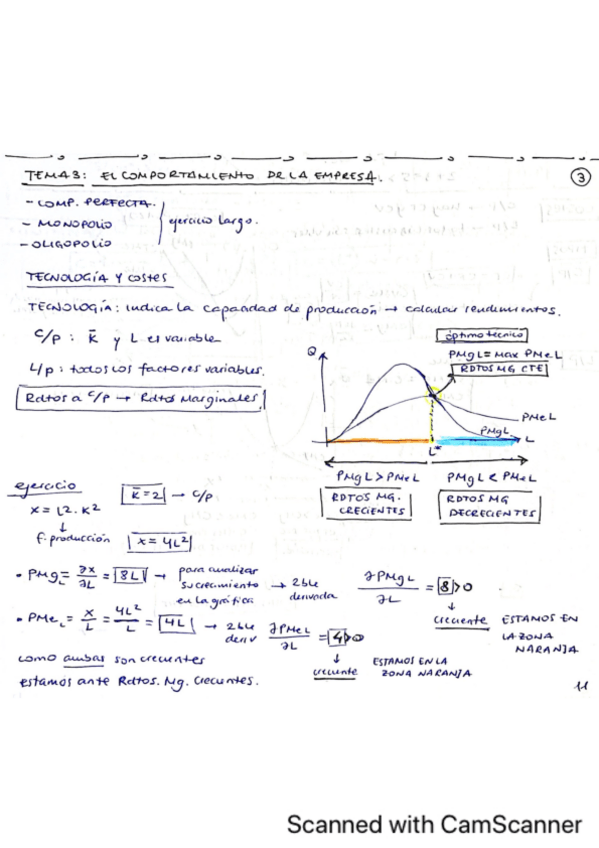 TEMA 3: EL COMPORTAMIENTO DE LA EMPRESA.
3
- COMP. PERFECTA.
- MONOPOLIO
- OLIGOPOLIO
ejercicio largo.
TECNOLOGÍA Y COSTES
TECNOLOGÍA: indica la capacidad de producción → calcular rendimientos.
C/P : K̄ y L es variable
L/p : todos los factores variables.
Rdtos a C/P → Rdtos Marginales
óptimo técnico
PMgL = MAX PMeL
RDTOS MG CTE
Q
PMeL
PMgL
L
L*
PMgL > PMeL
RDTOS MG.
CRECIENTES
PMgL < PMeL
RDTOS MG
DECRECIENTES
ejercicio
K̄ = 2 → C/P
X = L². K²
↓
f. producción
X = 4L²
• PMgL = ∂X/∂L = 8L → para analizar su crecimiento en la gráfica → 2ble derivada ∂PMgL/∂L = 8 > 0
↓
creciente ESTAMOS EN LA ZONA NARANJA
• PMeL = X/L = 4L²/L = 4L → 2ble deriv ∂PMeL/∂L = 4 > 0
↓
creciente ESTAMOS EN LA ZONA NARANJA
como ambas son crecientes
estamos ante Rdtos. Mg. Crecientes.
11
Scanned with CamScanner